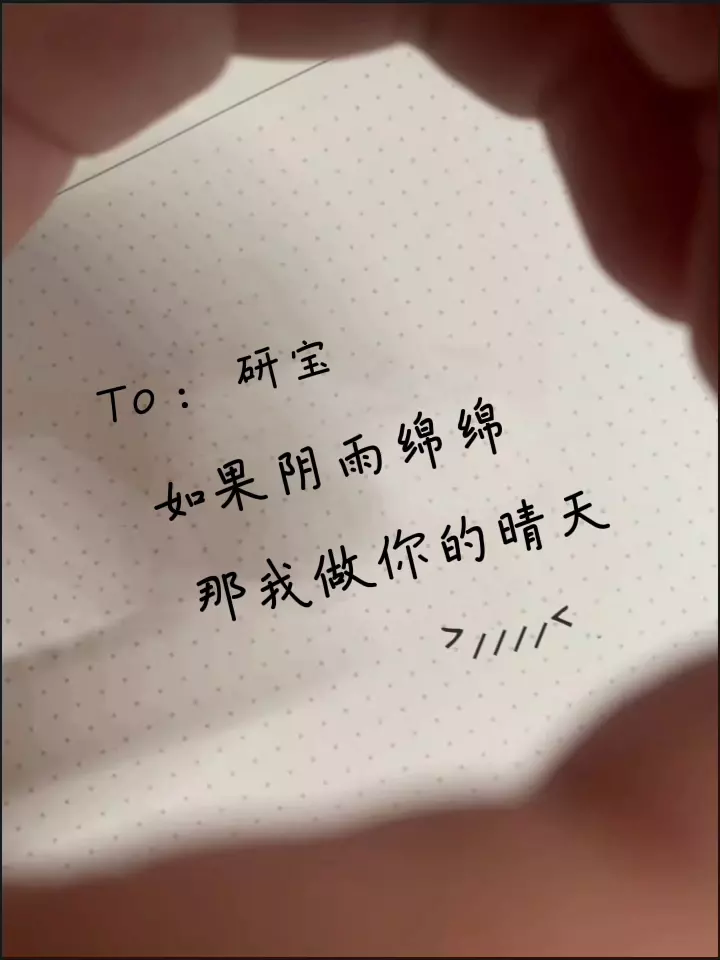 TO： 研宝
如果阴雨绵绵
那我做你的晴天
>////<